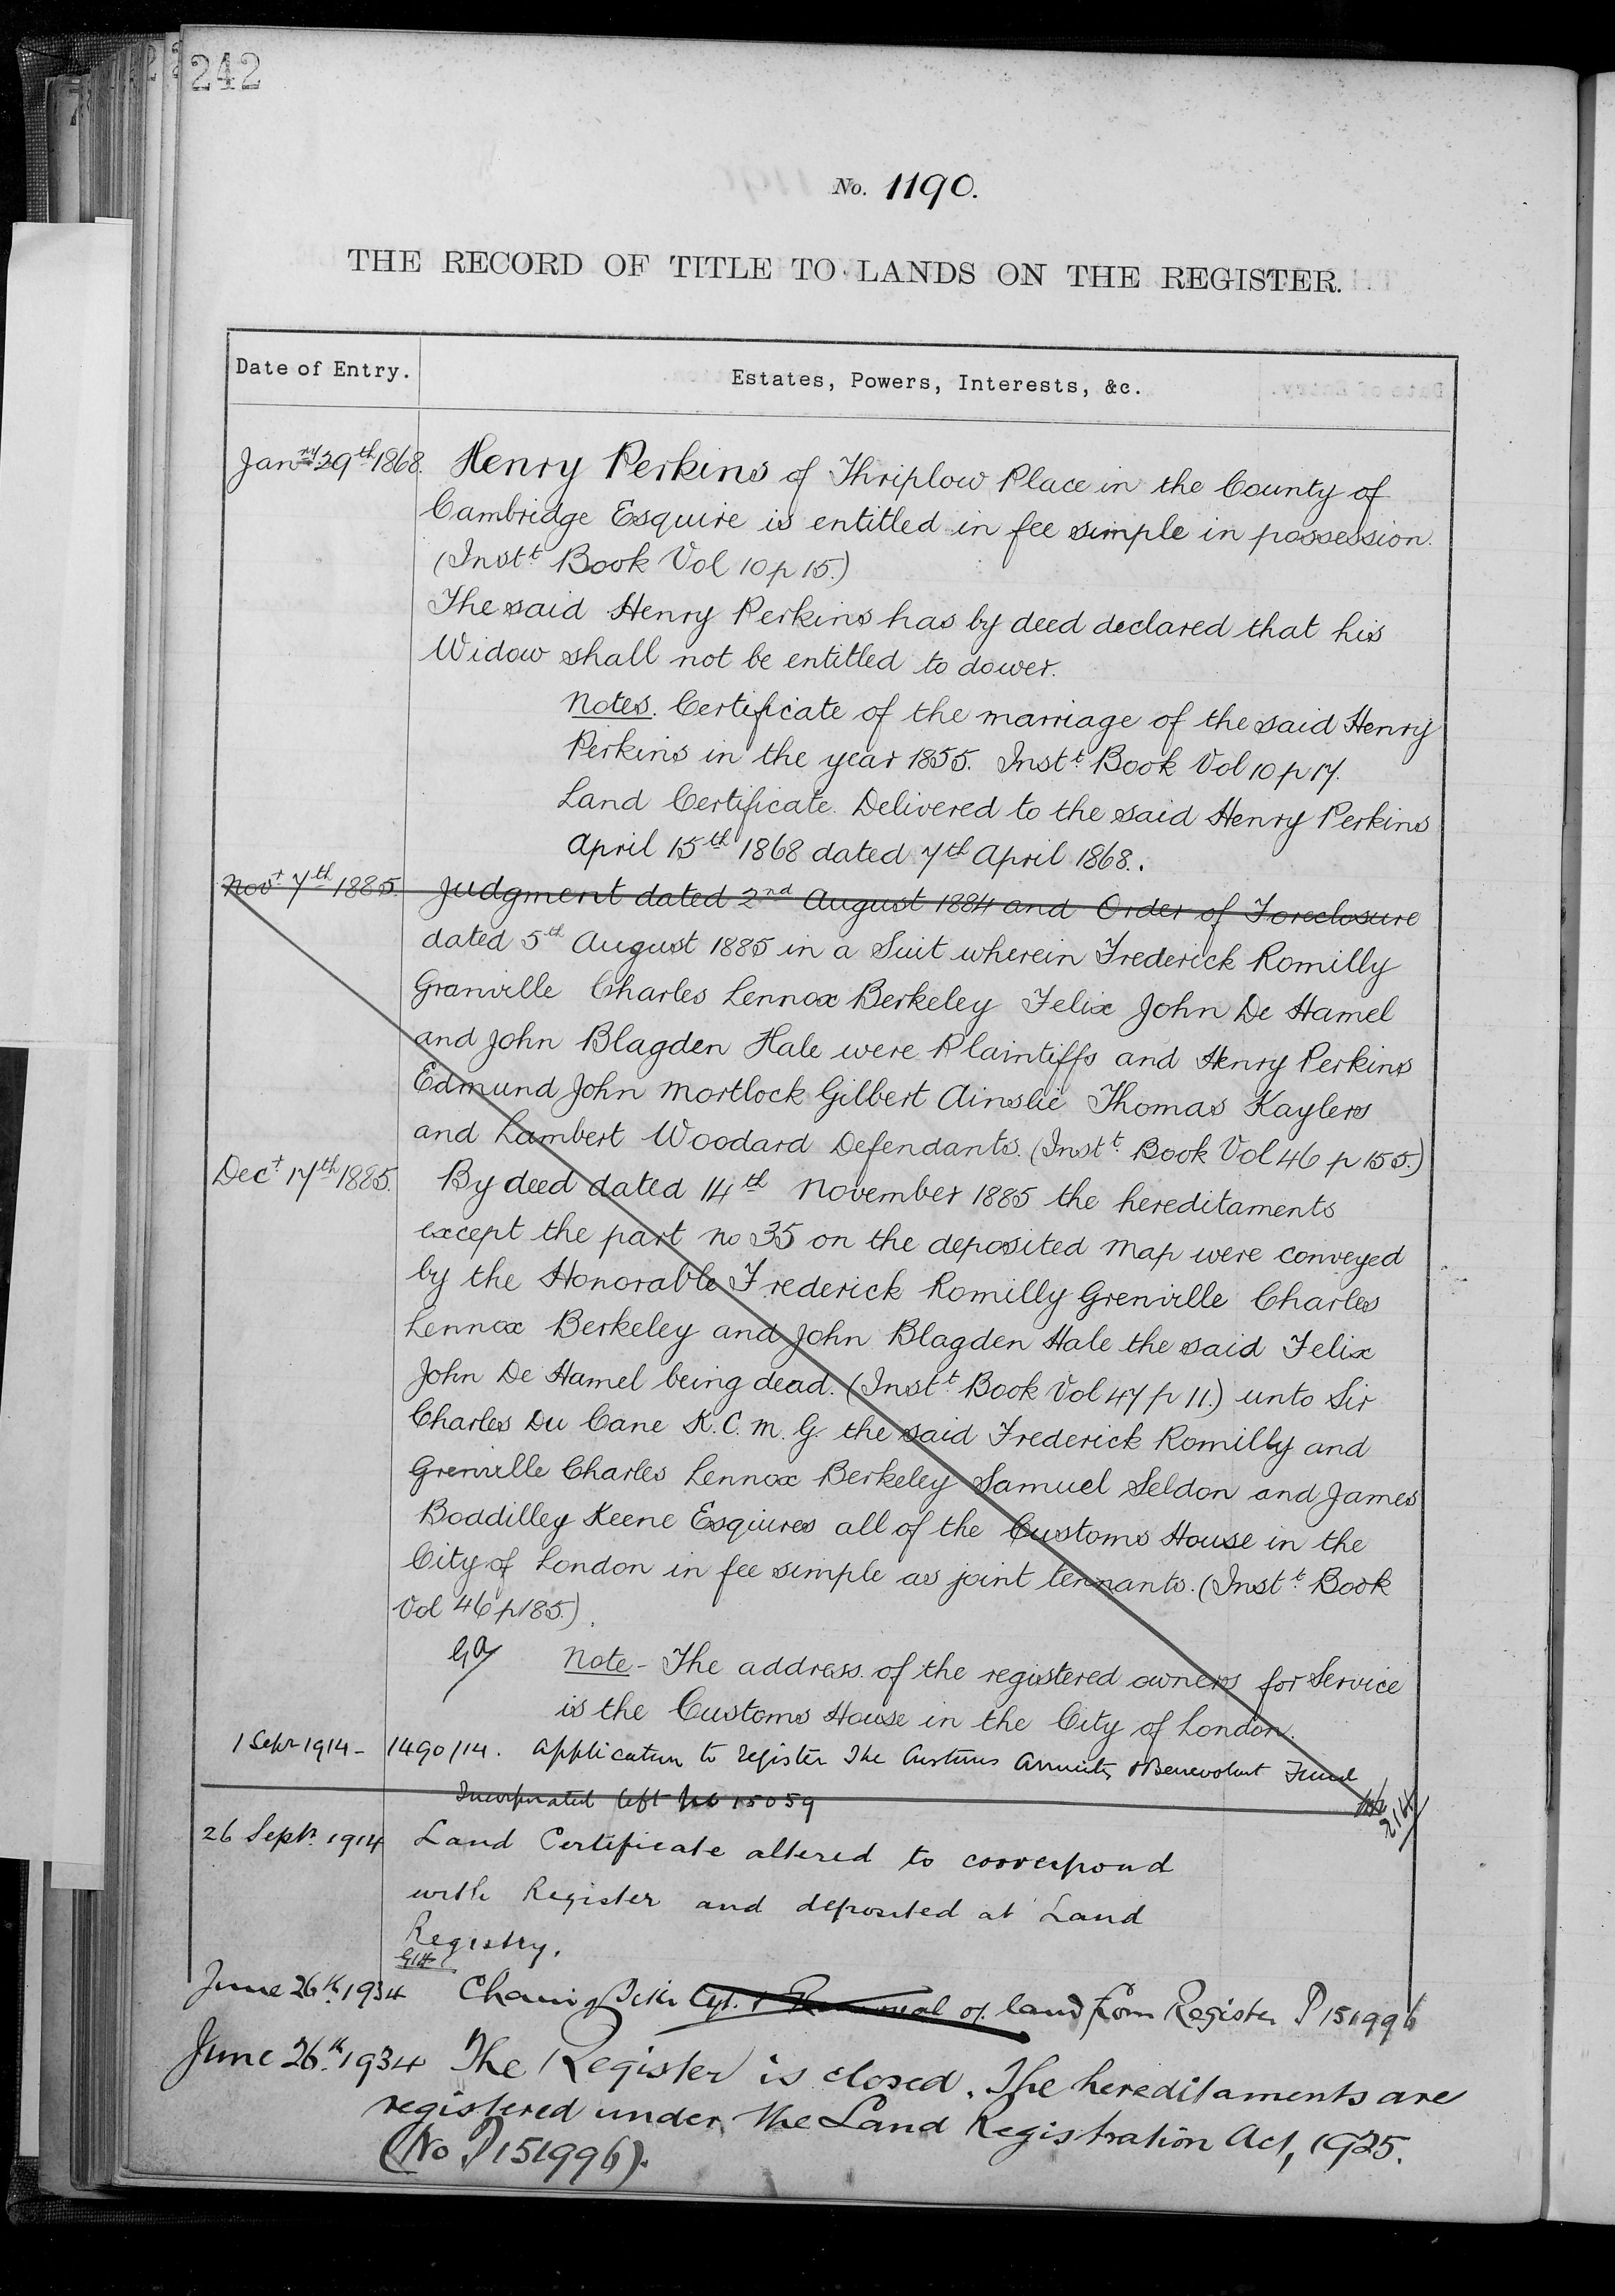 242
No. 1190.
THE RECORD OF TITLE TO LANDS ON THE REGISTER.
Date of Entry.
Estates, Powers, Interests, &c.
Janry 29th 1868. Henry Perkins of Thriplow Place in the County of
Cambridge Esquire is entitled in fee simple in possession.
(Instt. Book Vol 10 p 15.)
The said Henry Perkins has by deed declared that his
Widow shall not be entitled to dower.
Notes. Certificate of the marriage of the said Henry
Perkins in the year 1855. Instt. Book Vol 10 p 17.
Land Certificate. Delivered to the said Henry Perkins
April 15th 1868 dated 7th April 1868.
Novr 7th 1885. Judgment dated 2nd August 1884 and Order of Foreclosure
dated 5th August 1885 in a Suit wherein Frederick Romilly
Granville Charles Lennox Berkeley Felix John De Hamel
and John Blagden Hale were Plaintiffs and Henry Perkins
Edmund John Mortlock Gilbert Ainslie Thomas Kaylers
and Lambert Woodard Defendants. (Instt. Book Vol 46 p 155.)
Decr 17th 1885. By deed dated 14th November 1885 the hereditaments
except the part no 35 on the deposited map were conveyed
by the Honorable Frederick Romilly Grenville Charles
Lennox Berkeley and John Blagden Hale the said Felix
John De Hamel being dead. (Instt. Book Vol 47 p 11.) unto Sir
Charles Du Cane K.C.M.G. the said Frederick Romilly and
Grenville Charles Lennox Berkeley Samuel Seldon and James
Boddilley Keene Esquires all of the Customs House in the
City of London in fee simple as joint tennants. (Instt. Book
Vol 46 p 185.)
Note - The address of the registered owners for Service
is the Customs House in the City of London.
1 Sepr 1914 - 1490/14. Application to register The Customs Annuity & Benevolent Fund
Incorporated left 15059
26 Septr. 1914 Land Certificate altered to correspond
with Register and deposited at Land
Registry.
June 26th. 1934 of land from Register P 151996
June 26th. 1934 The Register is closed. The hereditaments are
registered under the Land Registration Act, 1925.
(No P 151996).